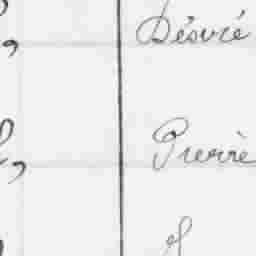 Désiré
Pierre